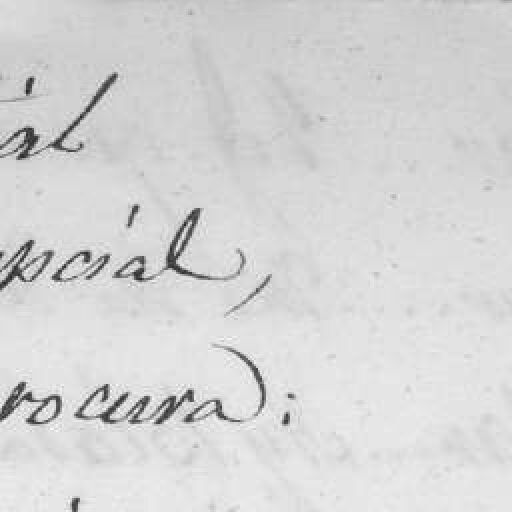 ial
upcial,
rocura):